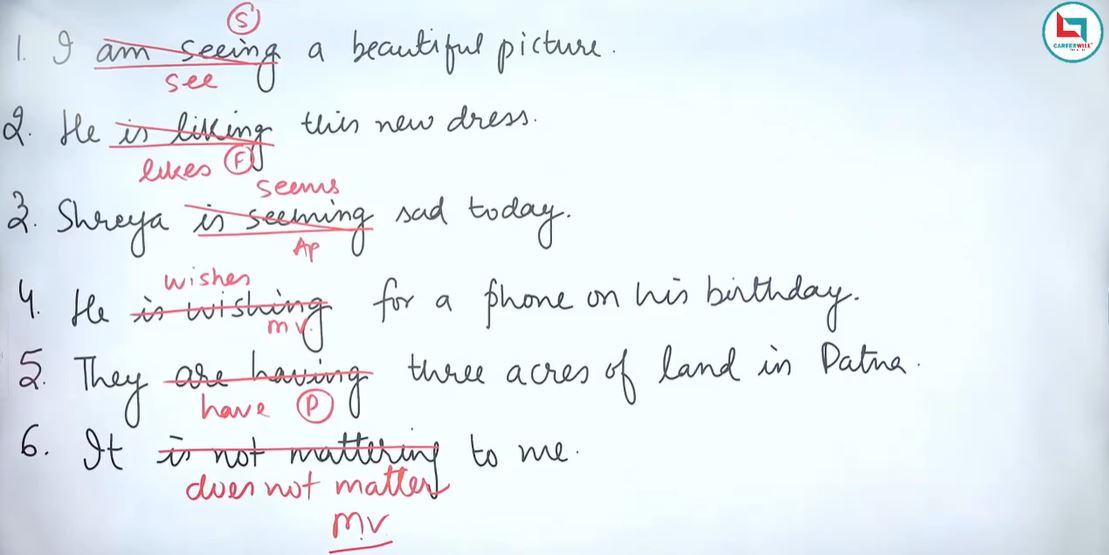 S
1. I am seeing a beautiful picture.
see
2. He is liking this new dress.
likes F
seems
3. Shreya is seeming sad today.
AP
wishes
4. He is wishing for a phone on his birthday.
mv.
5. They are having three acres of land in Patna.
have P
6. It is not mattering to me.
does not matter
m.v.
CAREERWILL